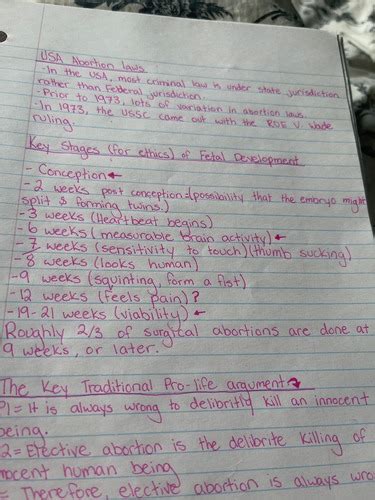 USA Abortion laws
- In the USA, most criminal law is under state jurisdiction
rather than Federal jurisdiction.
- Prior to 1973, lots of variation in abortion laws.
- In 1973, the USSC came out with the ROE V. Wade
ruling.
Key Stages (for ethics) of Fetal Development
- Conception ←
- 2 weeks post conception (possibility that the embryo might
split & forming twins.)
- 3 weeks (Heartbeat begins)
- 6 weeks (measurable brain activity) ←
- 7 weeks (sensitivity to touch) (thumb sucking)
- 8 weeks (looks human)
- 9 weeks (squinting, form a fist)
- 12 weeks (feels pain) ?
- 19-21 weeks (viability) ←
Roughly 2/3 of surgical abortions are done at
9 weeks, or later.
The Key Traditional Pro-life argument
P1 = It is always wrong to delibritly kill an innocent
being.
2 = Elective abortion is the delibrite killing of
nocent human being
= Therefore, elective abortion is always wro